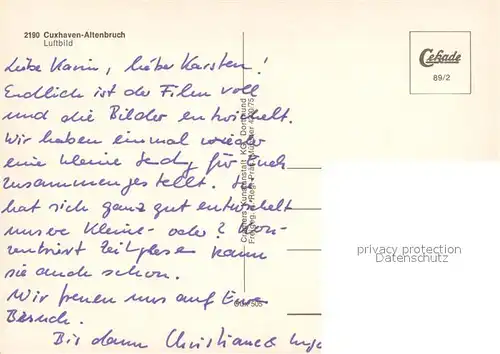 2190 Cuxhaven-Altenbruch
Luftbild
Cekade
89/2
Liebe Karin, lieber Karsten!
Endlich ist der Film voll
und die Bilder entwickelt.
Wir haben einmal wieder
eine kleine Sendg für Euch
zusammengestellt.
hat sich ganz gut entwickelt
unsere Kleine - oder? Kon-
zentriert Zeitg lesen kann
sie auch schon.
Wir freuen uns auf Eure
Besuch.
Bis dann Christiane & Ingo
Cramers Kunstanstalt KG, Dortmund
Cux 505
privacy protection
Datenschutz